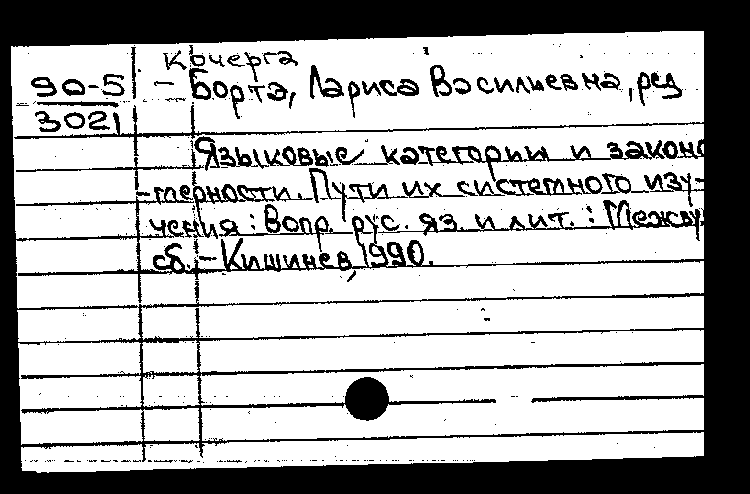 Кочерга
90-5 - Борта, Лариса Васильевна, ред
3021
Языковые категории и законо
-мерности. Пути их системного изу-
чения : Вопр. рус. яз. и лит. : Межву
сб. - Кишинев, 1990.